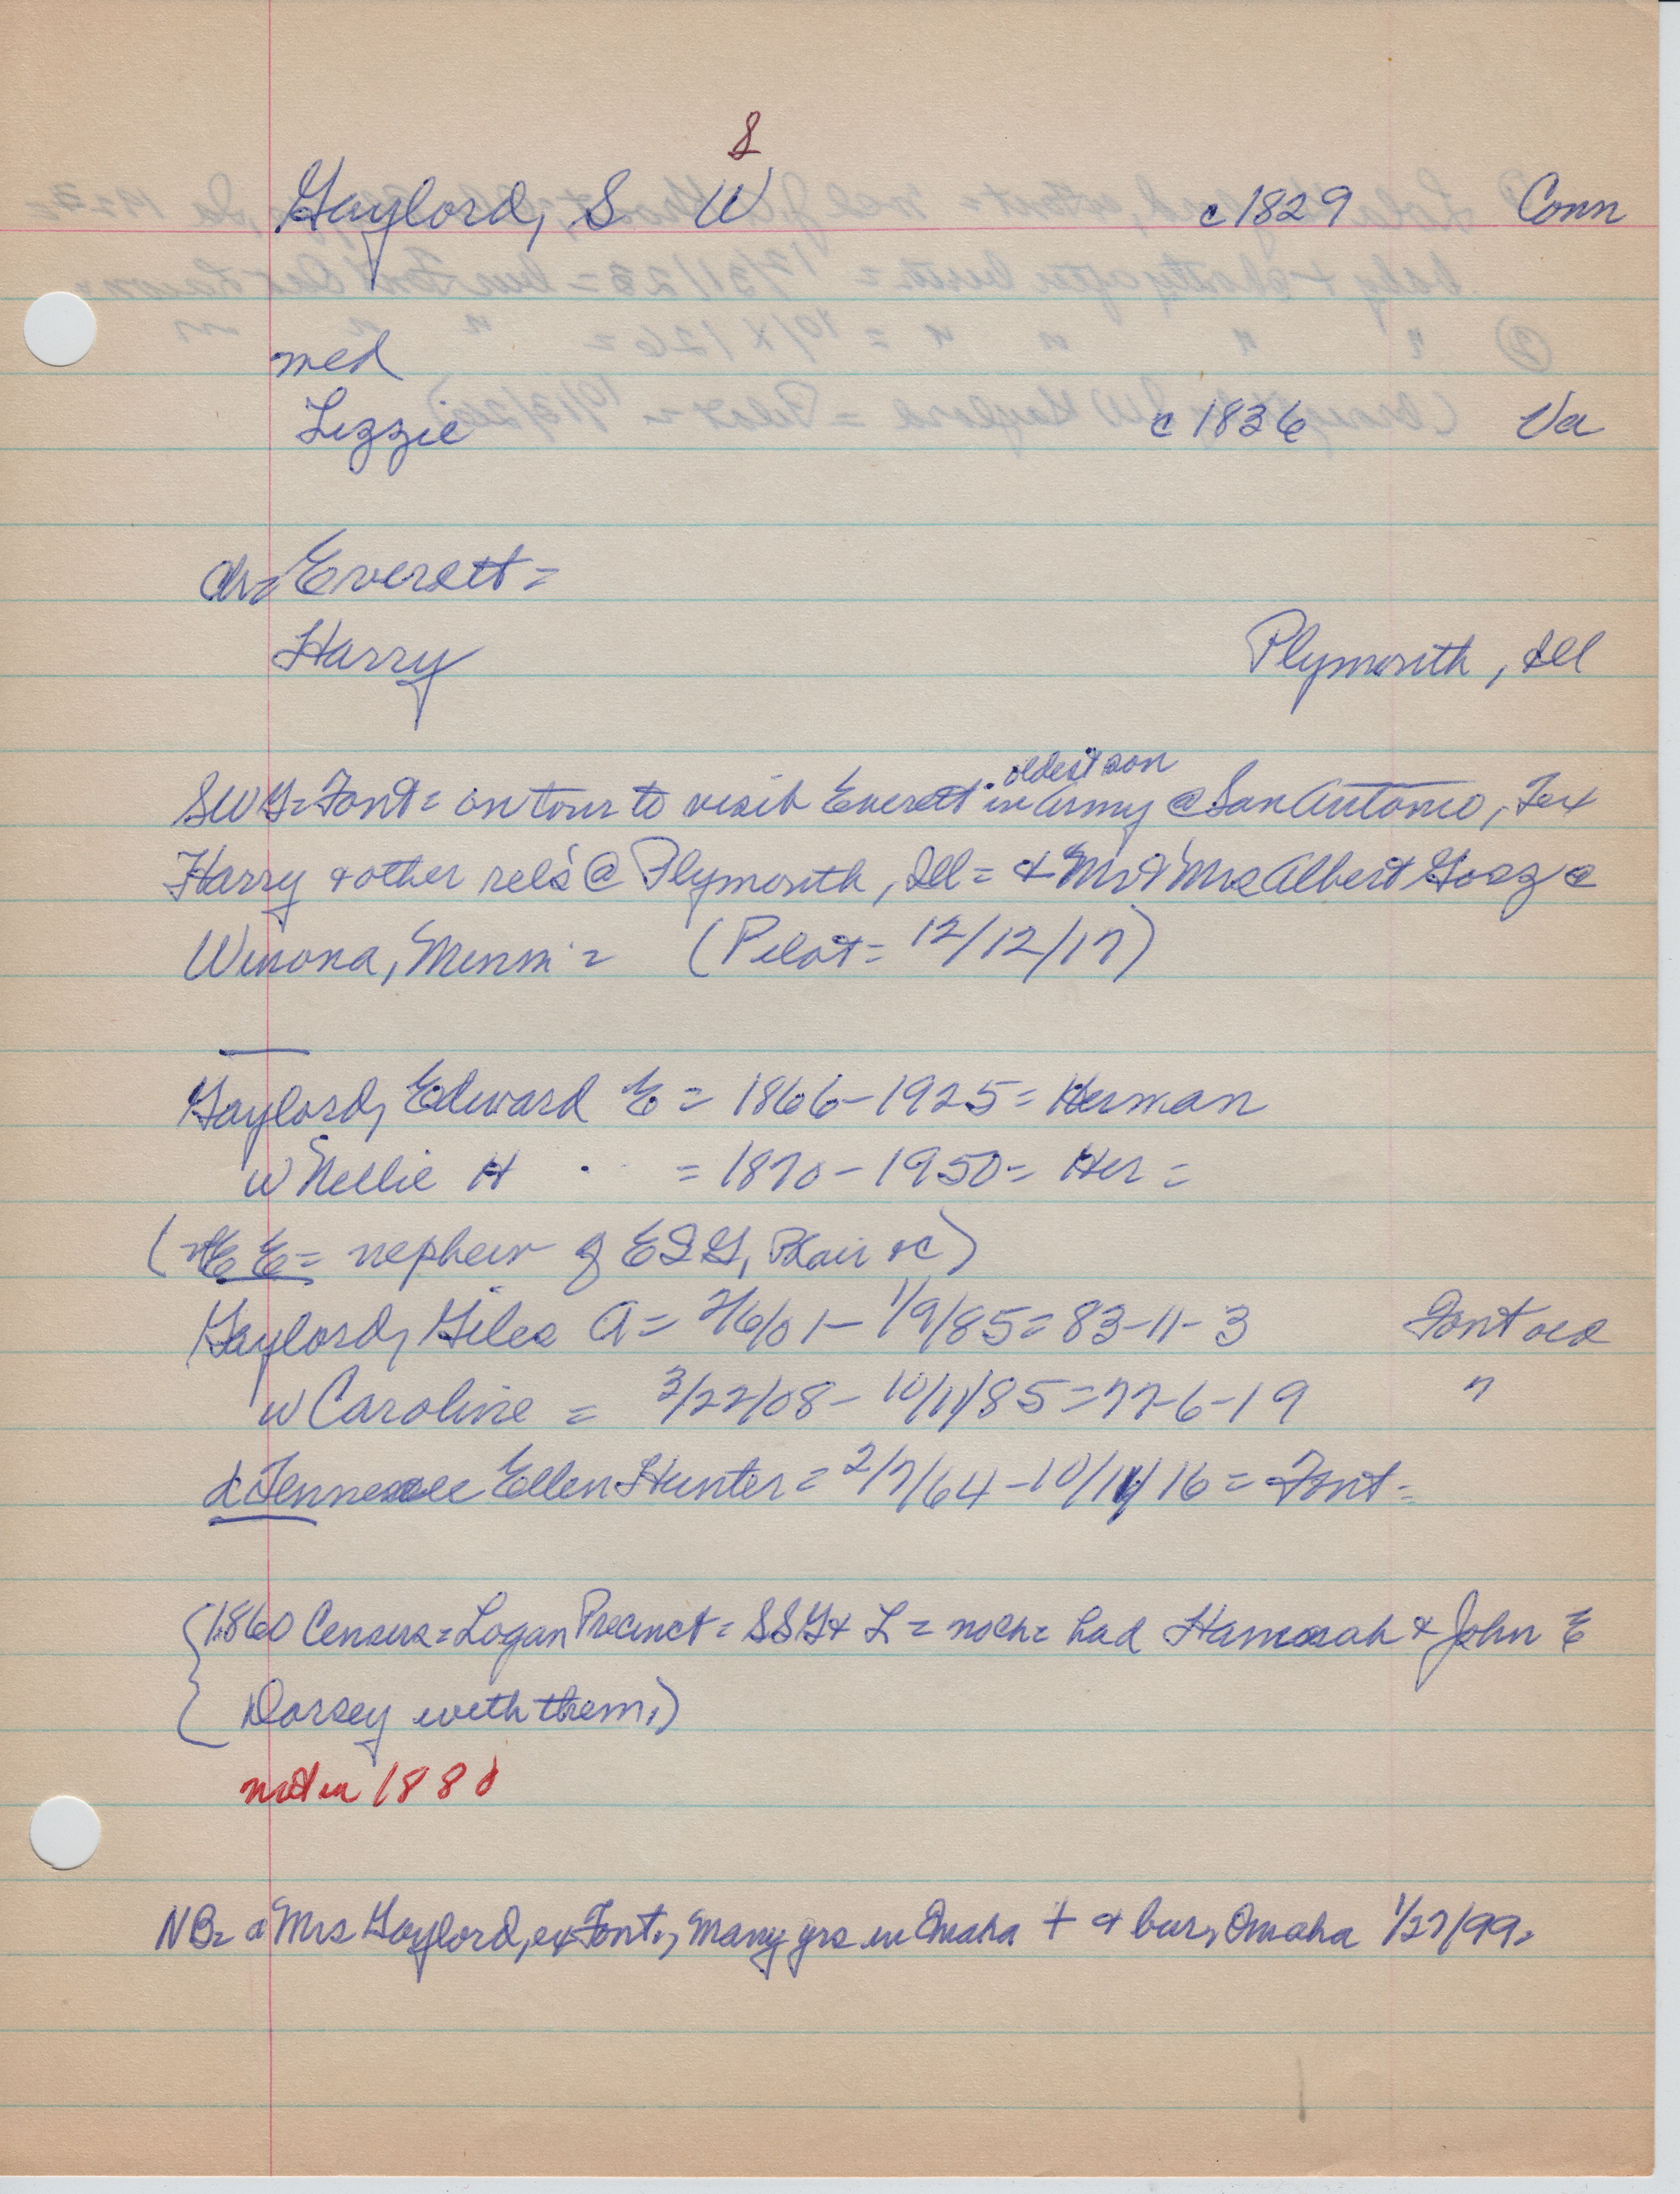 S
Gaylord, S W c1829 Conn
med
Lizzie c1836 Va
ch= Everett=
Harry Plymouth, Ill
oldest son
SWG= Font= on tour to visit Everett in Army @ San Antonio, Tex
Harry & other rel's @ Plymouth, Ill= & Mr & Mrs Albert @
Winona, Minn = (Pilot= 12/12/17)
Gaylord, Edward E = 1866-1925= Herman
w Nellie H = 1870-1950= Her=
(E E= nephew of ESG, Blair &c)
Gaylord, Giles A= 2/6/01-1/9/85=83-11-3 Font
w Caroline = 3/22/08-10/11/85=77-6-19 "
d Tennessee Ellen Hunter= 2/7/64-10/11/16= Font=
{1860 Census= Logan Precinct= SSG & L= noch= had Hannah & John E
Dorsey with them.)
not in 1880
NB= a Mrs Gaylord, ex Font., many yrs in Omaha + & bur, Omaha 1/27/99=